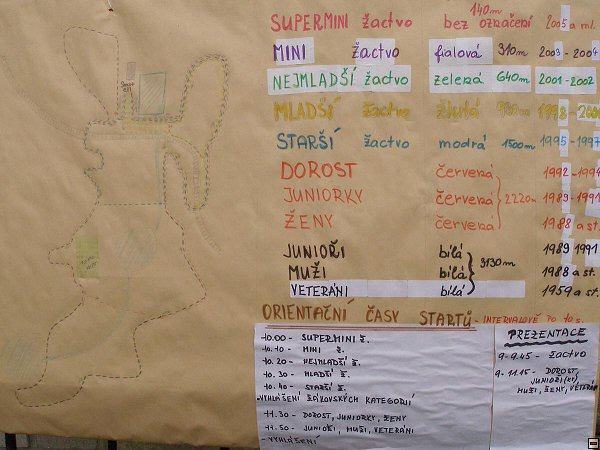 140m
SUPERMINI žactvo bez označení 2005 a ml.
MINI žactvo fialová 310m 2003 - 2004
NEJMLADŠÍ žactvo zelená 640m 2001 - 2002
MLADŠÍ žactvo žlutá 1998 - 2000
STARŠÍ žactvo modrá 1500m 1995 - 1997
DOROST červená 1992 - 1994
JUNIORKY červená 2220m 1989 - 1991
ŽENY červená 1988 a st.
JUNIOŘI bílá 1989 1991
MUŽI bílá 3130m 1988 a st.
VETERÁNI bílá 1959 a st.
ORIENTAČNÍ ČASY STARTŮ - INTERVALOVĚ PO 10 s.
10.00 - SUPERMINI Ž.
10.10 - MINI Ž.
10.20 - NEJMLADŠÍ Ž.
10.30 - MLADŠÍ Ž.
10.40 - STARŠÍ Ž.
- VYHLÁŠENÍ ŽÁKOVSKÝCH KATEGORIÍ
11.30 - DOROST, JUNIORKY, ŽENY
11.50 - JUNIOŘI, MUŽI, VETERÁNI
- VYHLÁŠENÍ
PREZENTACE
9 - 9.45 - ŽACTVO
9 - 11.15 - DOROST,
JUNIOŘI (KY)
MUŽI, ŽENY, VETERÁNI